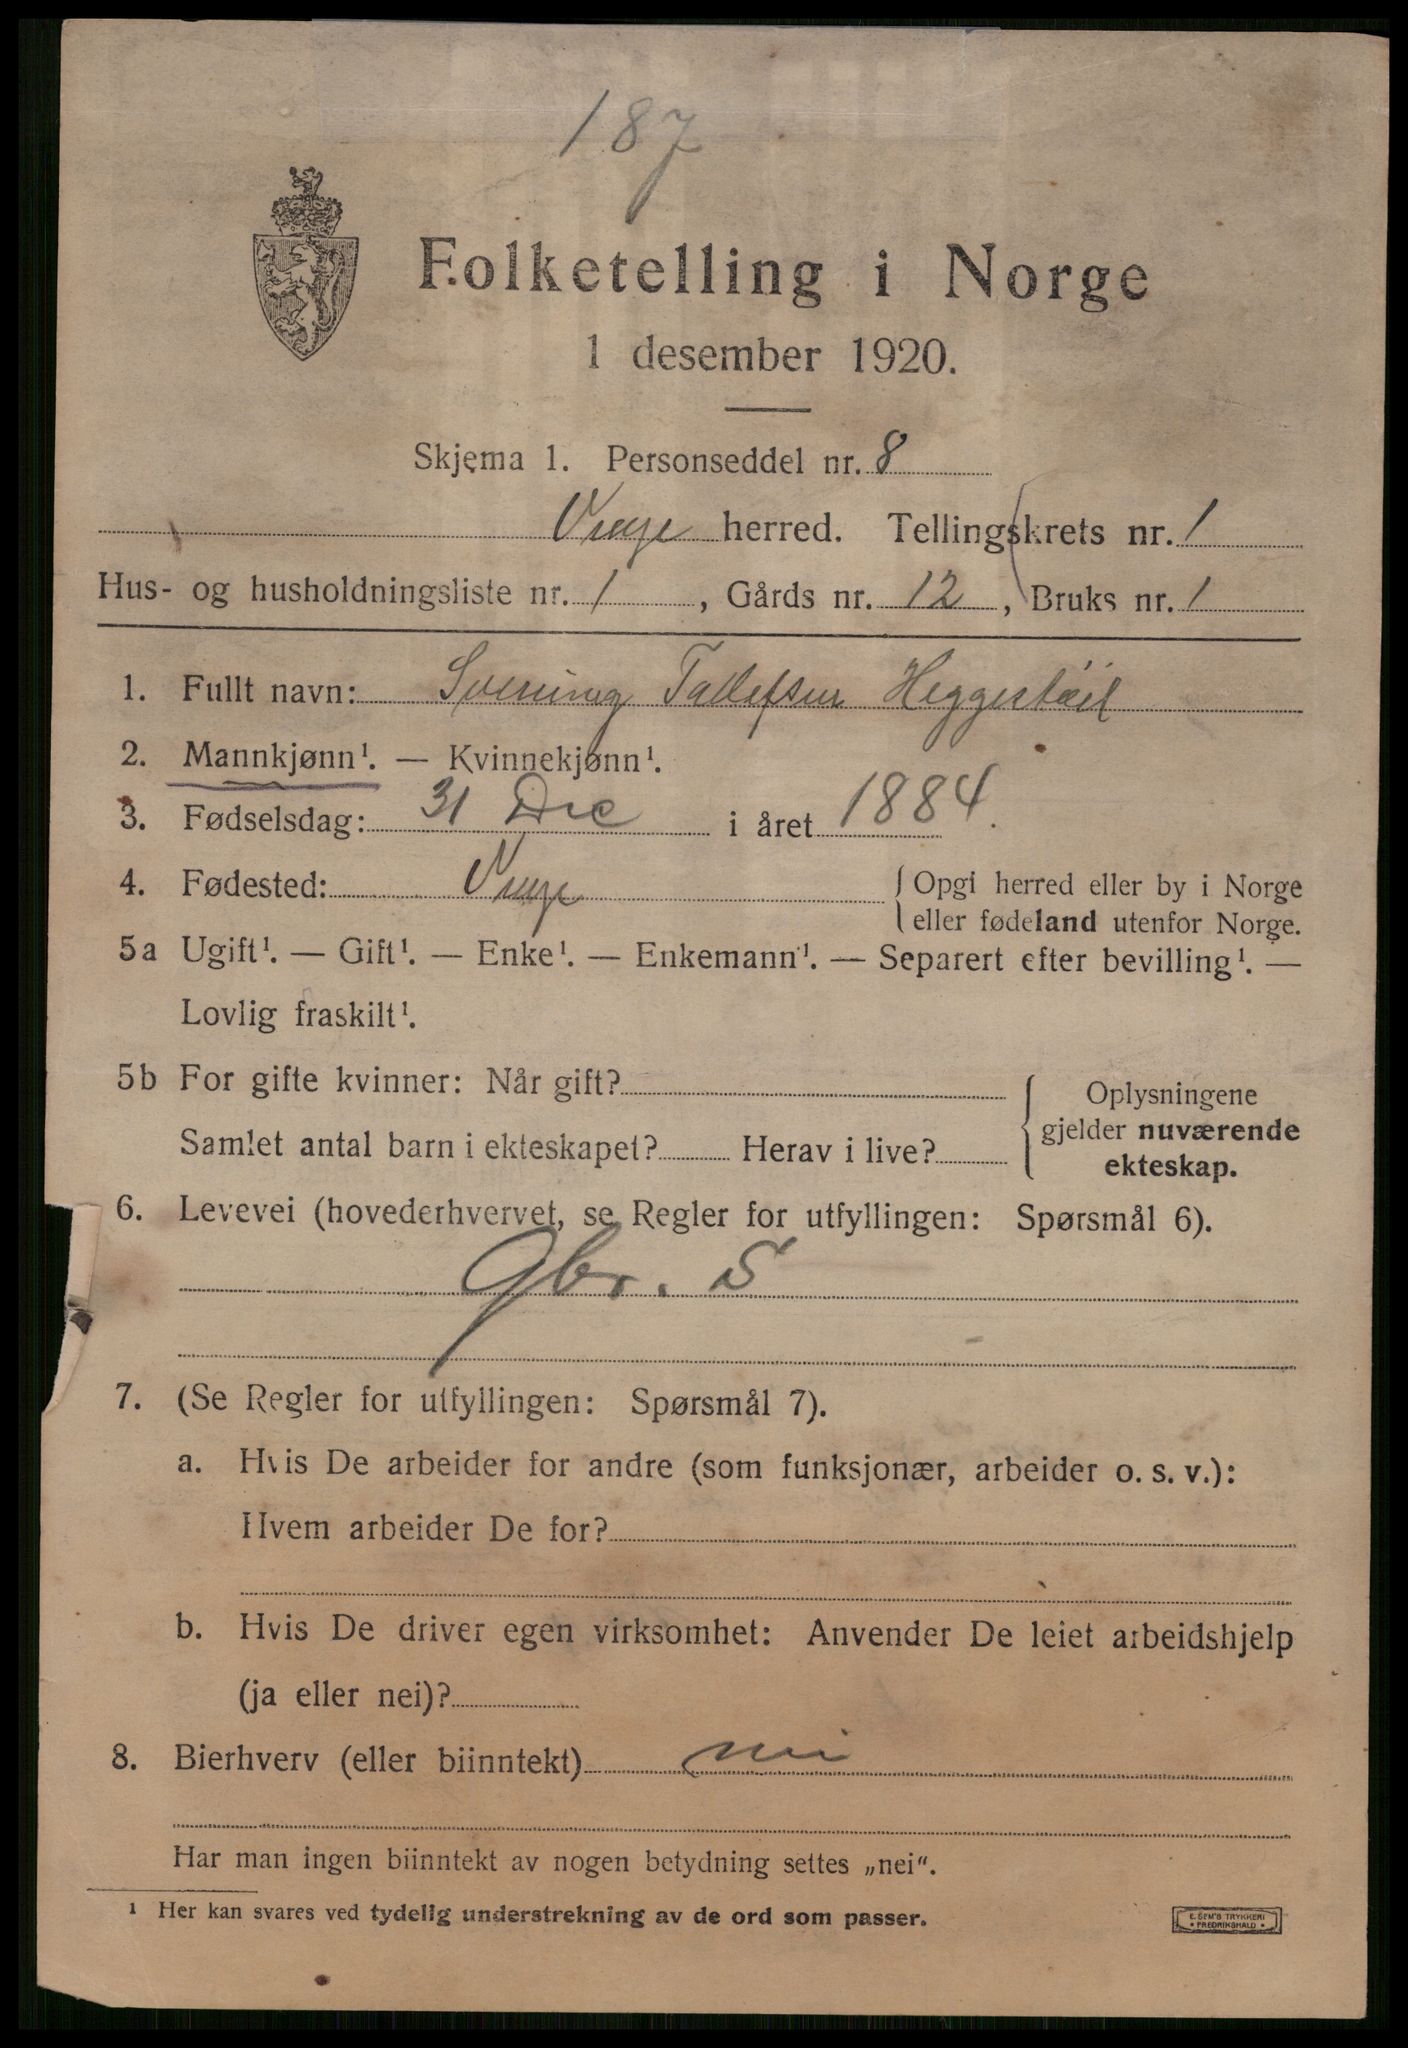 187
Folketelling i Norge
1 desember 1920.
Skjema 1. Personseddel nr. 8
Vinje herred. Tellingskrets nr. 1
Hus- og husholdningsliste nr. 1, Gårds nr. 12, Bruks nr. 1
1. Fullt navn: Svenung Tallefsen Heggestøil
2. Mannkjønn¹. — Kvinnekjønn¹.
3. Fødselsdag: 31 Dec i året 1884.
4. Fødested: Vinje { Opgi herred eller by i Norge
eller fødeland utenfor Norge.
5a Ugift¹. — Gift¹. — Enke¹. — Enkemann¹. — Separert efter bevilling¹. —
Lovlig fraskilt¹.
5b For gifte kvinner: Når gift? { Oplysningene
gjelder nuværende
Samlet antal barn i ekteskapet? Herav i live?
ekteskap.
6. Levevei (hovederhvervet, se Regler for utfyllingen: Spørsmål 6).
Gbr. S
7. (Se Regler for utfyllingen: Spørsmål 7).
a. Hvis De arbeider for andre (som funksjonær, arbeider o. s. v.):
Hvem arbeider De for?
b. Hvis De driver egen virksomhet: Anvender De leiet arbeidshjelp
(ja eller nei)?
8. Bierhverv (eller biinntekt) nei
Har man ingen biinntekt av nogen betydning settes „nei“.
¹ Her kan svares ved tydelig understrekning av de ord som passer.
E. SEM'S TRYKKERI
• FREDRIKSHALD •